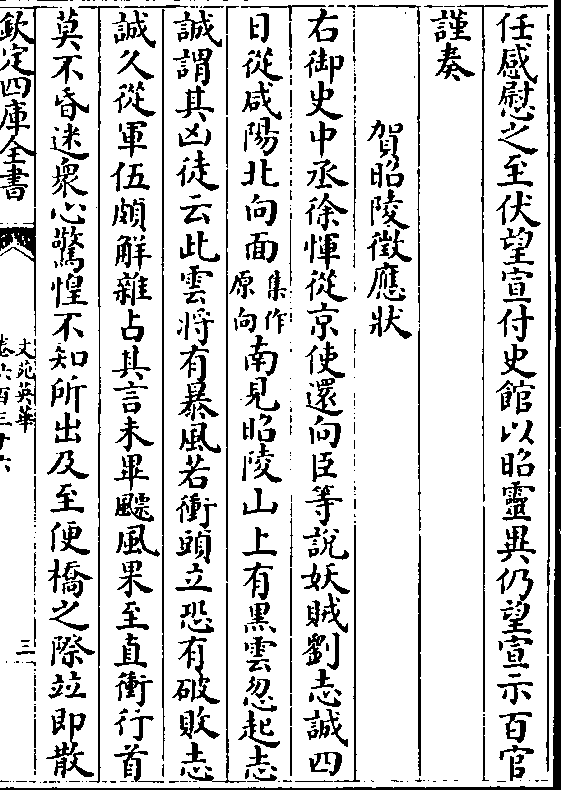 任感慰之至伏望宣付史館以昭靈異仍望宣示百官
謹奏
賀昭陵徵應狀
右御史中丞徐惲從京使還向臣等說妖賊劉志誠四
日從咸陽北向面集作原向南見昭陵山上有黑雲忽起志
誠謂其凶徒云此雲將有暴風若衝頭立恐有破敗志
誠久從軍伍頗解雜占其言未畢飈風果至直衝行首
莫不昏迷衆心驚惶不知所出及至便橋之際竝即散
欽定四庫全書
文苑英華
卷六百三十六
三